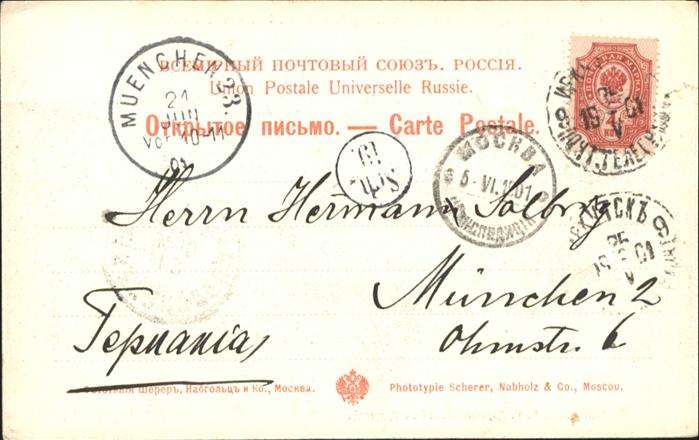 ВСЕМІРНЫЙ ПОЧТОВЫЙ СОЮЗЪ. РОССІЯ.
Union Postale Universelle Russie.
Открытое письмо. — Carte Postale.
MUENCHEN 23.
21
JUN
Vo 10-11
01
МОСКВА
6-VI.1901
25
19 01
V
ПОЧТ.ТЕЛЕГР
25
19 01
V
Sch.
19.
Herrn Hermann Solbrig
München 2
Ohmstr. 6
Германія
Шереръ, Набгольцъ и Ко., Москва.
Phototypie Scherer, Nabholz & Co., Moscou.